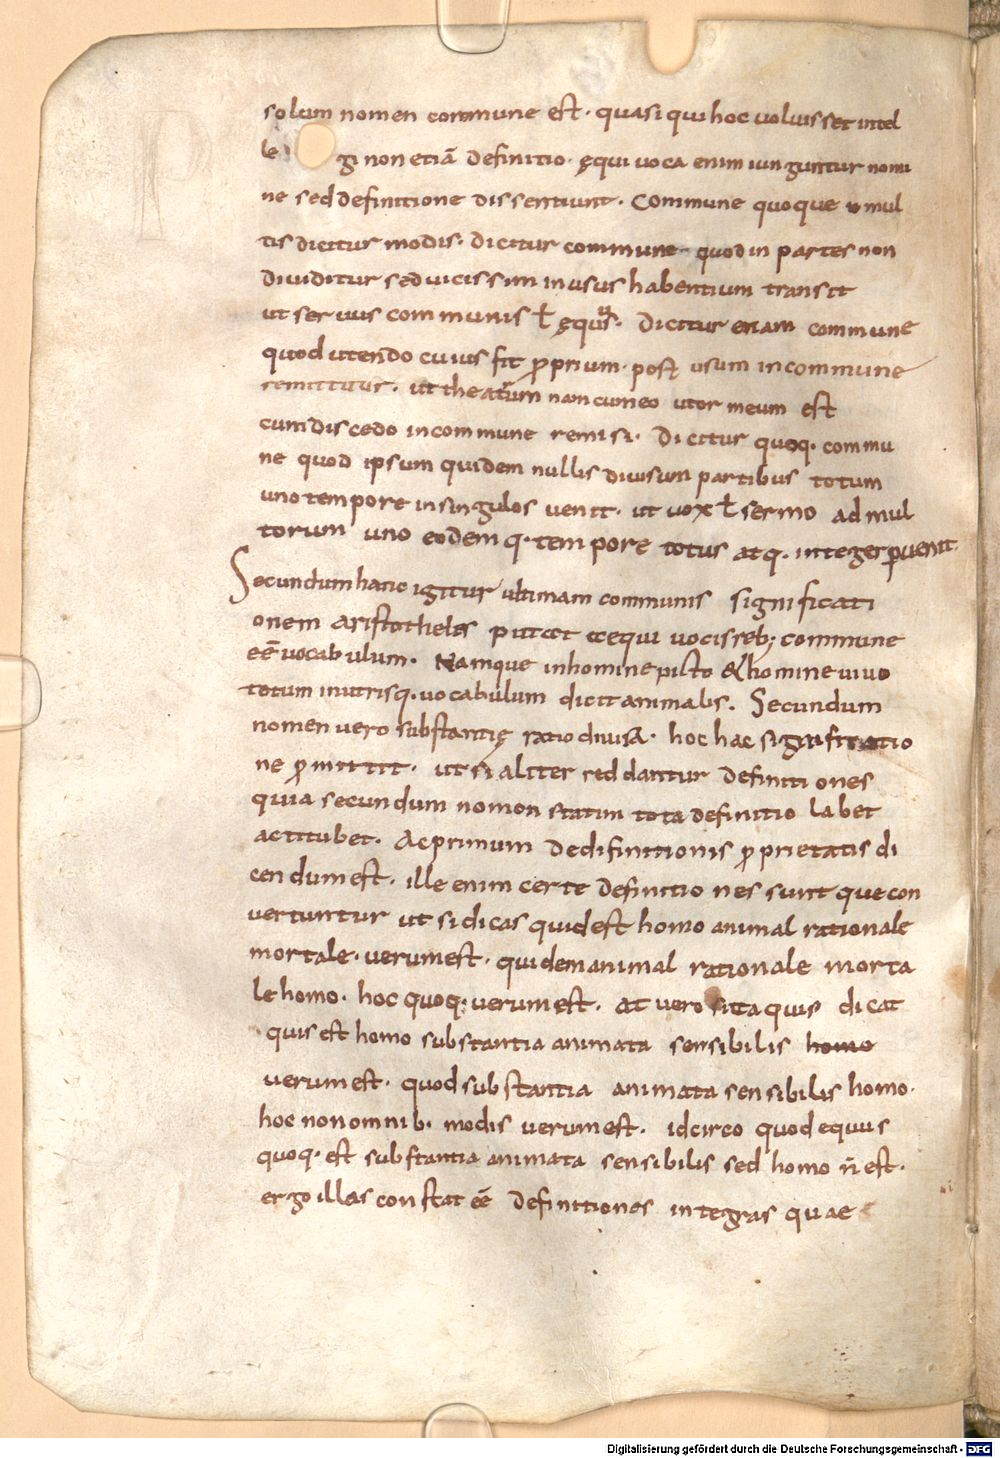 solum nomen commune est · quasi qui hoc voluisset intel
le gi non etiā definitio · ęqui voca enim iunguntur nomi
ne sed definitione dissentiunt · Commune quoque mul
tis dicitur modis · dicitur commune · quod in partes non
dividitur sed vicissim in usus habentium transit
ut servus communis ł ęquus · Dicitur etiam commune
quod utendo cuius fit ꝓprium · post usum in commune
remittitur · ut theatrum nam cuneo utor meum est
cum discedo in commune remisi · Dicitur quoq· commu
ne quod ipsum quidem nullis divisum partibus totum
uno tempore in singulos venit · ut vox ł sermo ad mul
torum uno eodem q· tempore totus atq· integer ꝑvenit
Secundum hanc igitur ultimam communis significati
onem aristotheles putat aequi vocis reb; commune
eē vocabulum · Namque in homine picto & homine vivo
totum in utrisq· vocabulum dicit animalis · Secundum
nomen vero substantię ratio diversa · hoc hac significatio
ne ꝓmittit · ut si aliter reddantur definitiones
quia secundum nomen statim tota definitio labet
ac titubet · Ac primum de difinitionis ꝓprietatis di
cendum est · ille enim certe definitiones sunt que con
vertuntur ut si dicas quid est homo animal rationale
mortale · verum est · quidem animal rationale morta
le homo · hoc quoq· verum est · at vero si ita quis dicat
quis est homo substantia animata sensibilis homo
verum est · quod substantia animata sensibilis homo ·
hoc non omnib· modis verum est · idcirco quod equus
quoq· est substantia animata sensibilis sed homo n̄ est ·
ergo illas constat eē definitiones integras quae
Digitalisierung gefördert durch die Deutsche Forschungsgemeinschaft - DFG